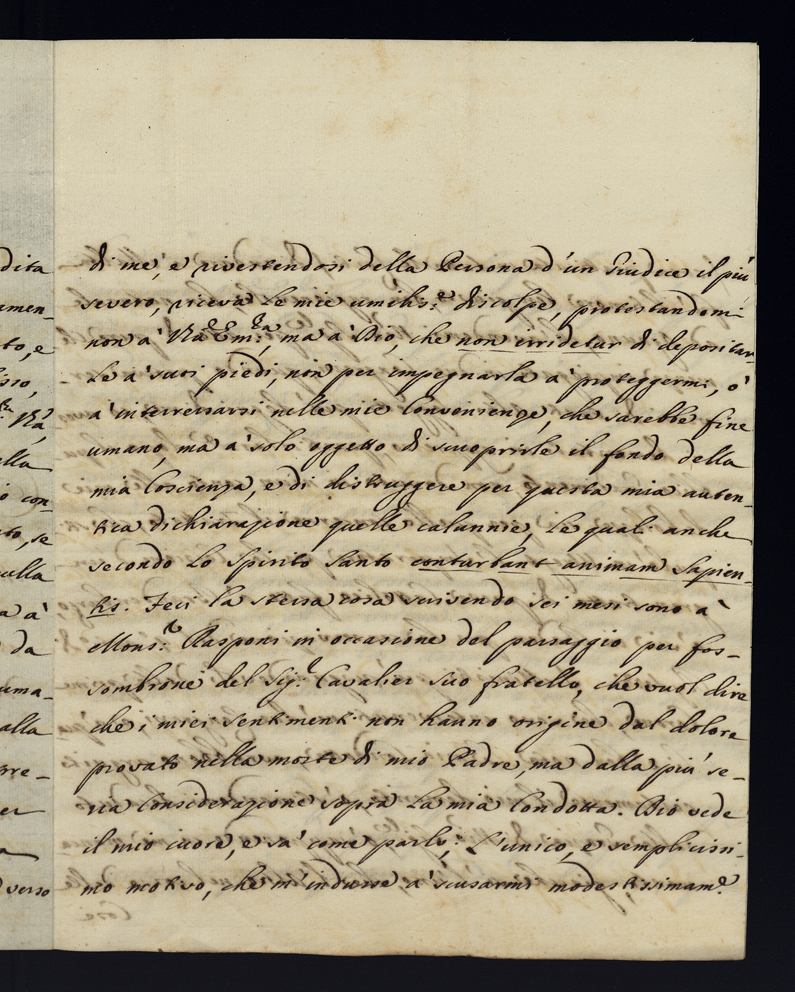 dita
amen-
to, e
isso,
Vrã,
alla
io con
ato, se
ulla
a a'
da
uma-
alla
rre-
er
verso
di me, e rivestendosi della Persona d'un Giudice il più
severo, riceva le mie umiliss:e discolpe, protestandomi
non a' Vrã Em:za, ma a' Dio, che non irridetur di depositar-
le a' suoi piedi, non per impegnarla a' proteggermi, o'
a' interessarsi nelle mie Convenienze, che sarebbe fine
umano, ma a' solo oggetto di scuoprirle il fondo della
mia Coscienza, e di distruggere per questa mia auten-
tica dichiarazione quelle calunnie, le quali anche
secondo lo Spirito Santo conturbant animam Sapien-
tis. Feci la stessa cosa scrivendo sei mesi sono a'
Mons:r Rasponi in occasione del passaggio per Fos-
sombrone del Sig:r Cavalier suo fratello, che vuol dire
che i miei sentimenti non hanno origine dal dolore
provato nella morte di mio Padre, ma dalla più se-
ria Considerazione sopra la mia Condotta. Dio vede
il mio cuore, e sa' come parlo; L'unico, e semplicissi-
mo motivo, che m'indusse a' scusarmi modestissimam:e